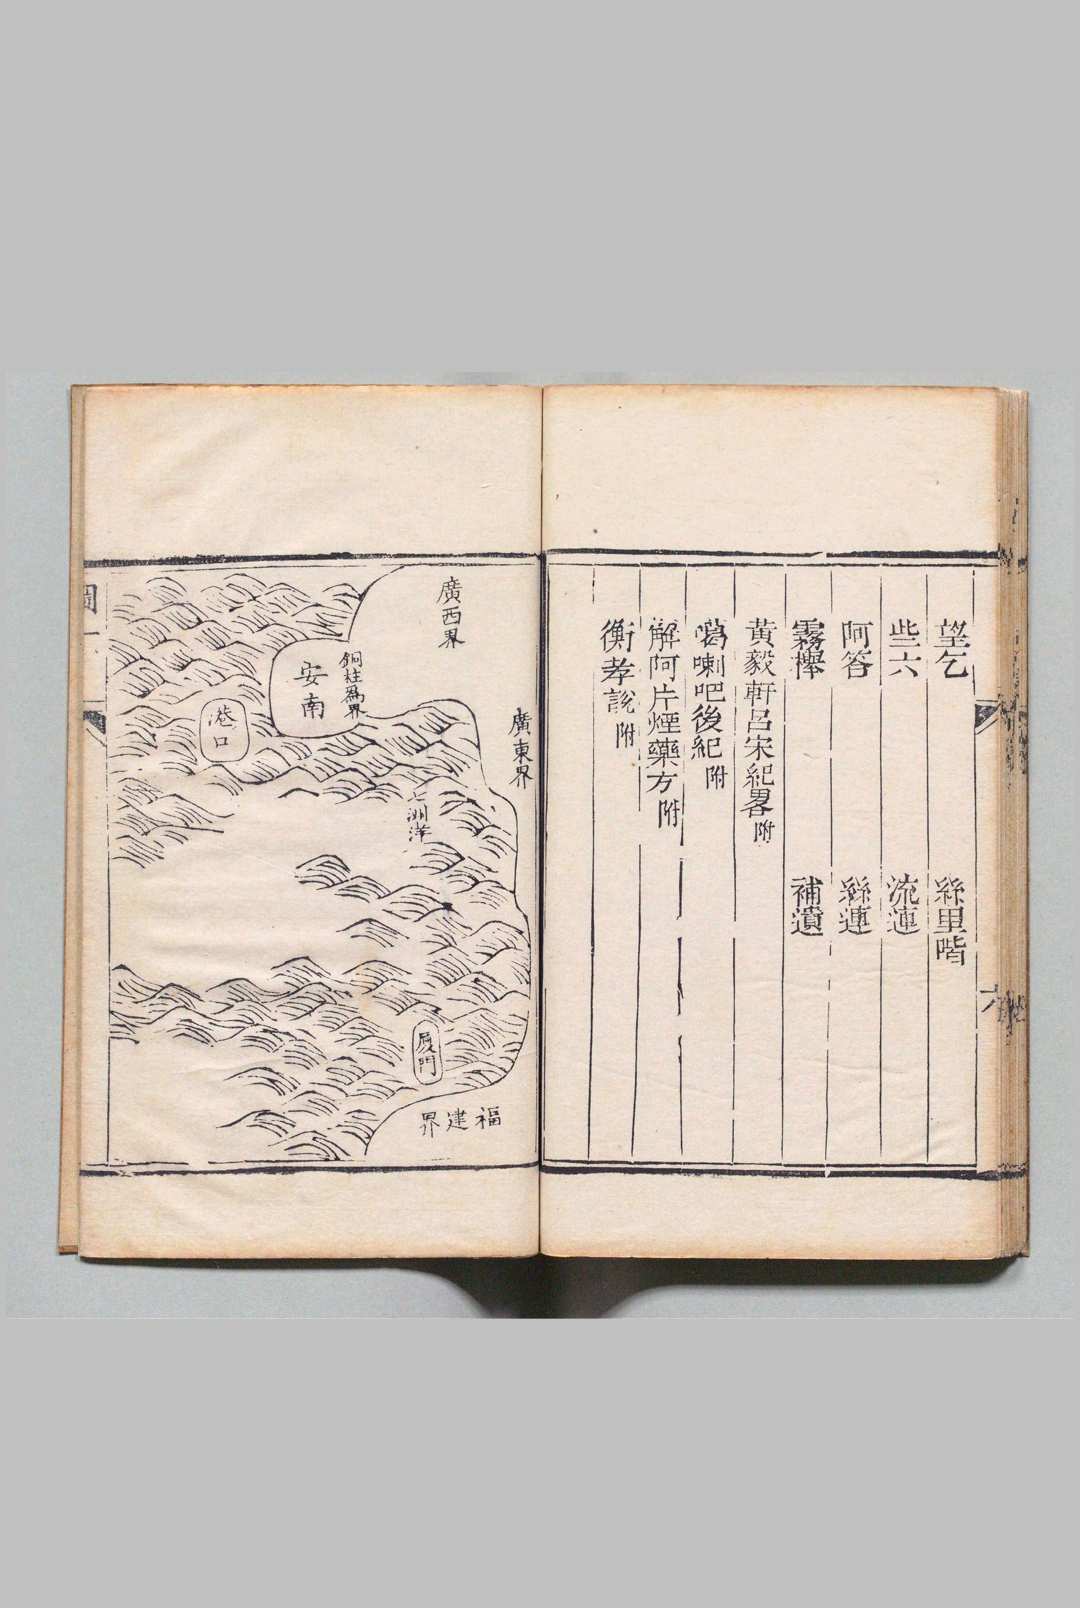 望乞 絲里階
些六 流連
阿答 絲連
霧櫸 補遺
黃毅軒呂宋紀畧附
噶喇吧後紀附
解阿片煙藥方附
衡孝說附
六
廣西界
廣東界
銅柱爲界
安南
港口
七洲洋
厦門
福建界
圖